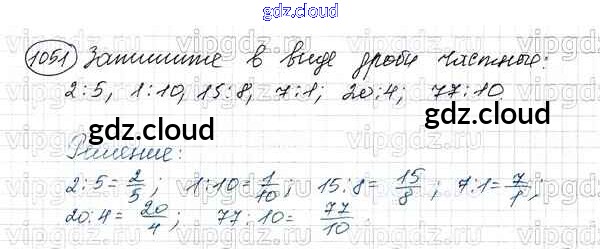 gdz.cloud
1051 Запишите в виде дроби частные:
2:5, 1:10, 15:8, 7:1; 20:4; 77:10
gdz.cloud gdz.cloud
Решение:
2:5=2/5; 1:10=1/10; 15:8=15/8; 7:1=7/1;
20:4=20/4; 77:10=77/10.